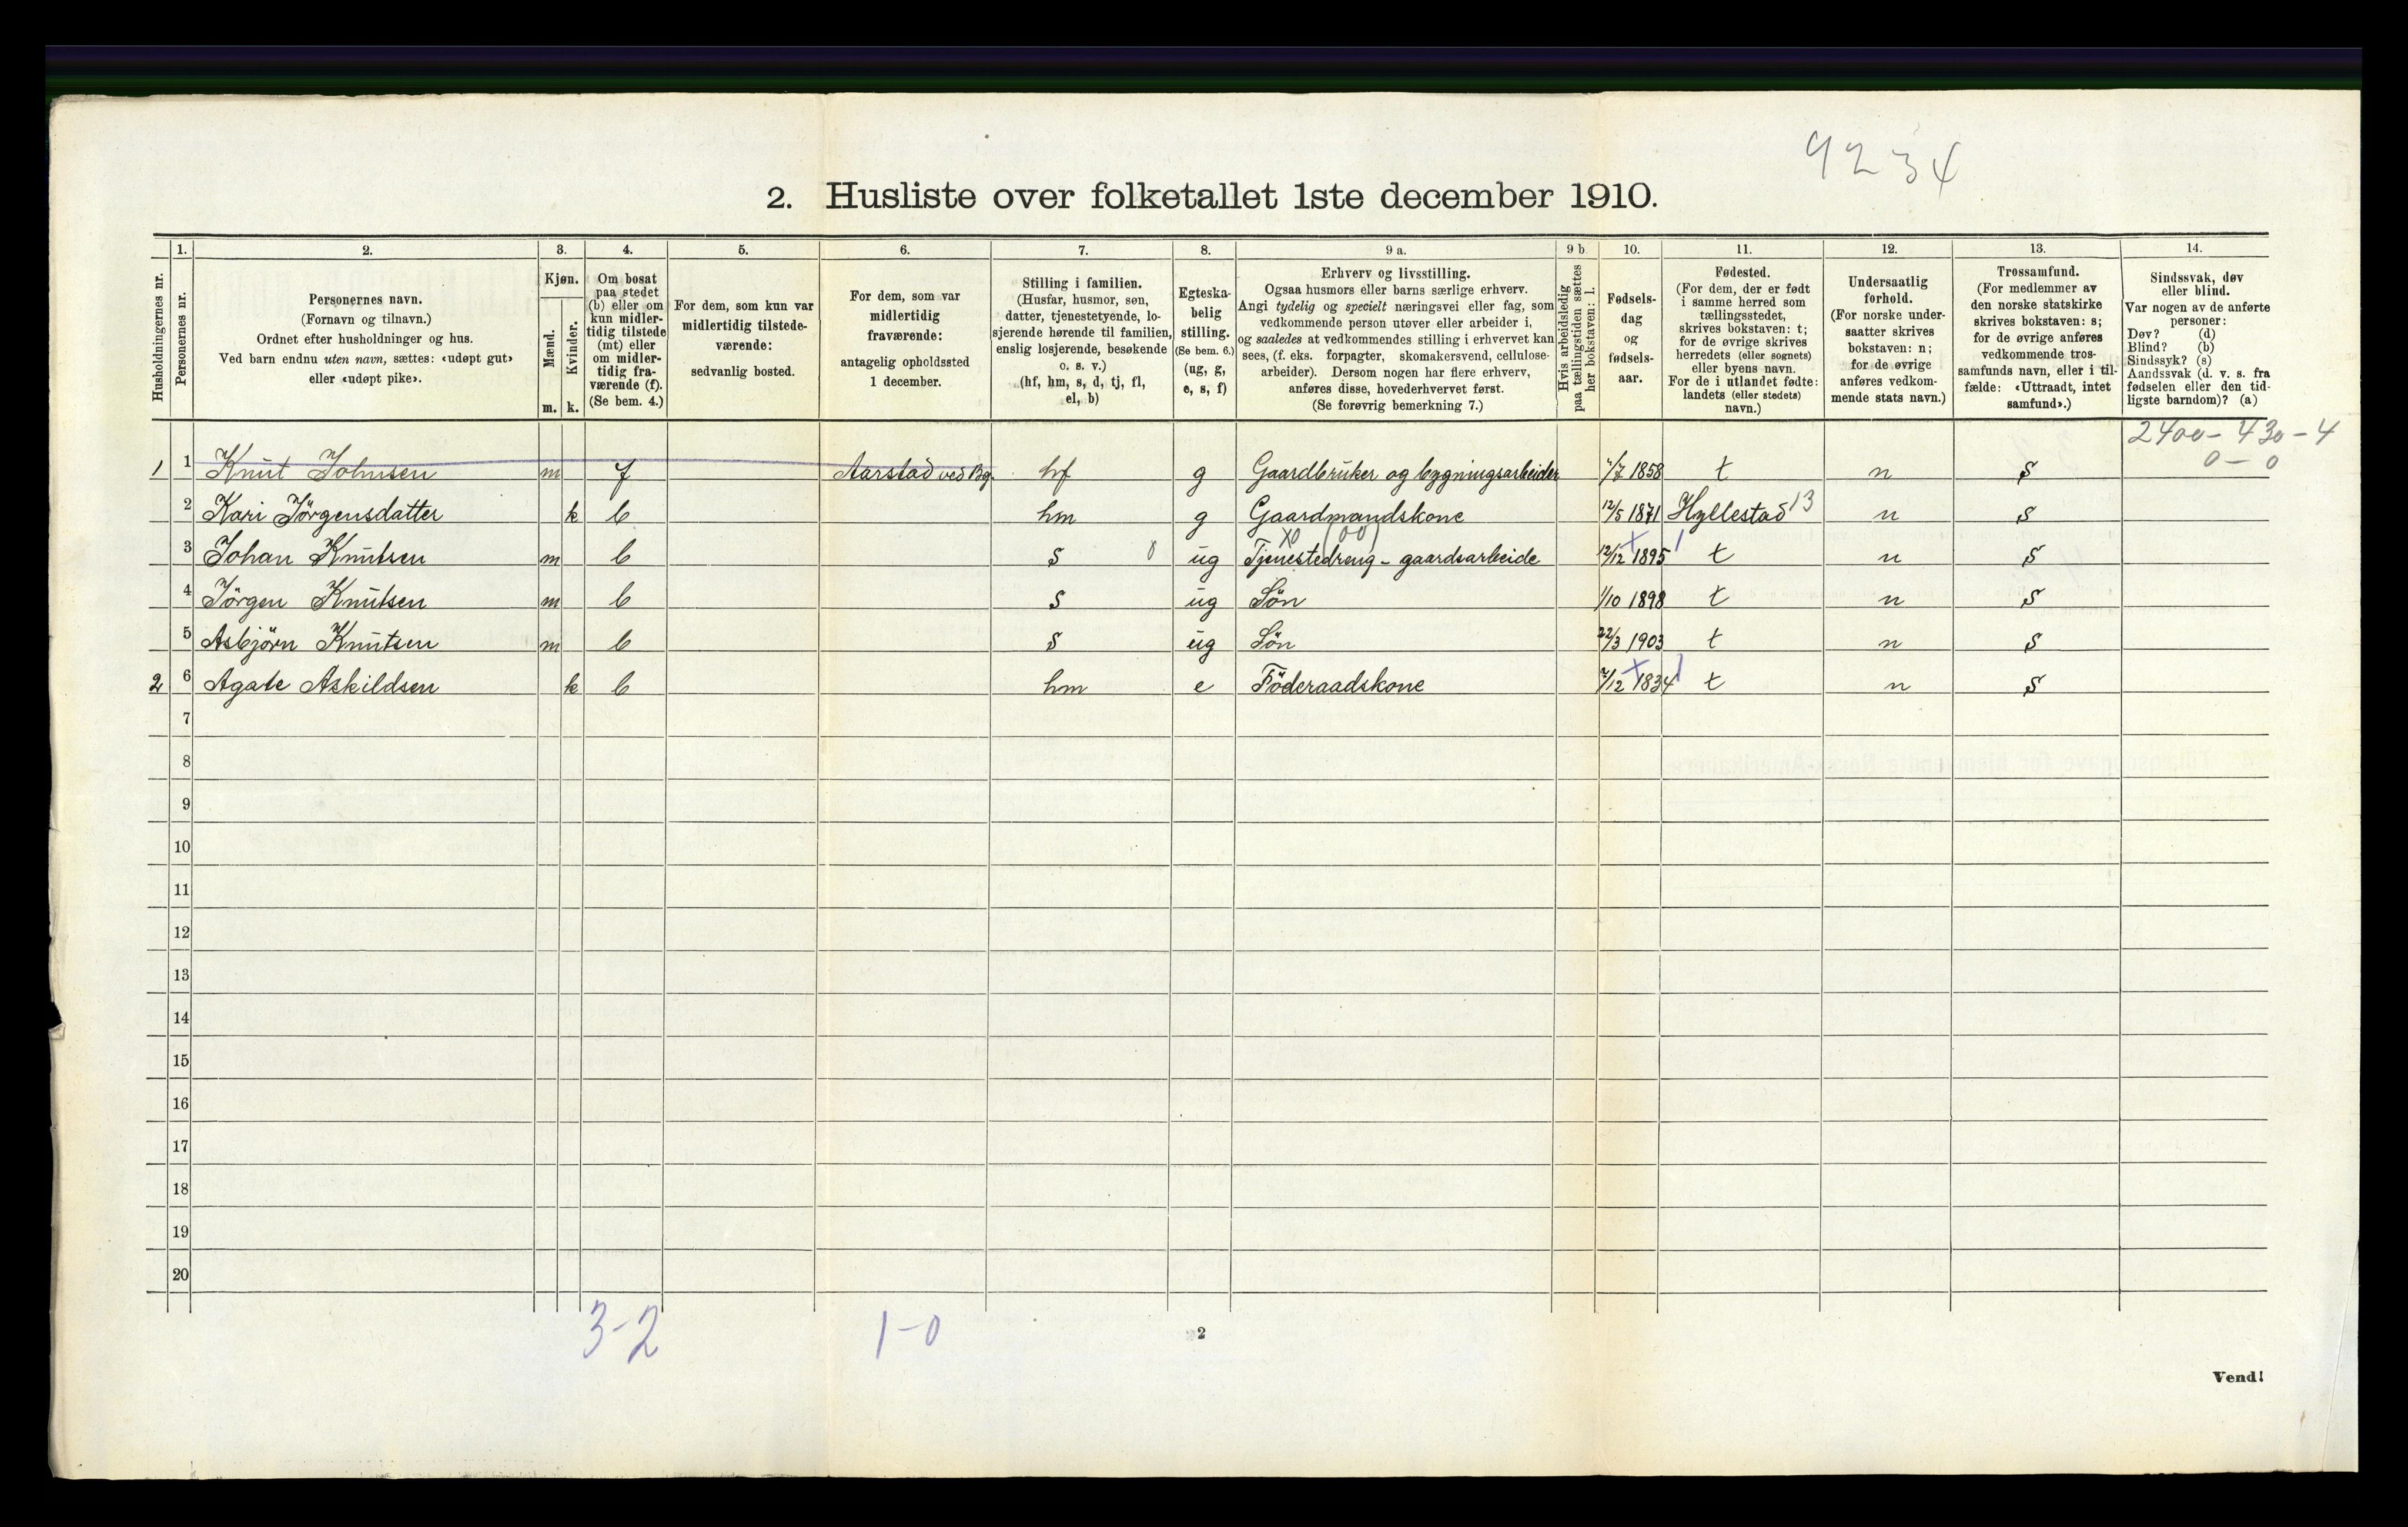 9234
2. Husliste over folketallet 1ste december 1910.
Husholdningernes nr.
1.
Personernes nr.
2.
Personernes navn.
(Fornavn og tilnavn.)
Ordnet efter husholdninger og hus.
Ved barn endnu uten navn, sættes: «udøpt gut»
eller «udøpt pike».
3.
Kjøn.
Mænd.
Kvinder.
m. k.
4.
Om bosat
paa stedet
(b) eller om
kun midler-
tidig tilstede
(mt) eller
om midler-
tidig fra-
værende (f).
(Se bem. 4.)
5.
For dem, som kun var
midlertidig tilstede-
værende:
sedvanlig bosted.
6.
For dem, som var
midlertidig
fraværende:
antagelig opholdssted
1 december.
7.
Stilling i familien.
(Husfar, husmor, søn,
datter, tjenestetyende, lo-
sjerende hørende til familien,
enslig losjerende, besøkende
o. s. v.)
(hf, hm, s, d, tj, fl,
el, b)
8.
Egteska-
belig
stilling.
(Se bem. 6.)
(ug, g,
e, s, f)
9 a.
Erhverv og livsstilling.
Ogsaa husmors eller barns særlige erhverv.
Angi tydelig og specielt næringsvei eller fag, som
vedkommende person utøver eller arbeider i,
og saaledes at vedkommendes stilling i erhvervet kan
sees, (f. eks. forpagter, skomakersvend, cellulose-
arbeider). Dersom nogen har flere erhverv,
anføres disse, hovederhvervet først.
(Se forøvrig bemerkning 7.)
9 b
Hvis arbeidsledig
paa tællingstiden sættes
her bokstaven: l.
10.
Fødsels-
dag
og
fødsels-
aar.
11.
Fødested.
(For dem, der er født
i samme herred som
tællingsstedet,
skrives bokstaven: t;
for de øvrige skrives
herredets (eller sognets)
eller byens navn.
For de i utlandet fødte:
landets (eller stedets)
navn.)
12.
Undersaatlig
forhold.
(For norske under-
saatter skrives
bokstaven: n;
for de øvrige
anføres vedkom-
mende stats navn.)
13.
Trossamfund.
(For medlemmer av
den norske statskirke
skrives bokstaven: s;
for de øvrige anføres
vedkommende tros-
samfunds navn, eller i til-
fælde: «Uttraadt, intet
samfund».)
14.
Sindssvak, døv
eller blind.
Var nogen av de anførte
personer:
Døv? (d)
Blind? (b)
Sindssyk? (s)
Aandssvak (d. v. s. fra
fødselen eller den tid-
ligste barndom)? (a)
2400 - 430 - 4
0 - 0
1 1 Knut Johnsen m f Aarstad ved Bg. hf g Gaardbruker og bygningsarbeider /7 1858 t n s
2 Kari Jörgensdatter k b hm g Gaardmandskone 12/5 1871 Hyllestad 13 n s
X0 (00)
3 Johan Knutsen m b s 0 ug Tjenestedreng - gaardsarbeide 12/12 1895 t n s
4 Jörgen Knutsen m b s ug Sön 1/10 1898 t n s
5 Asbjörn Knutsen m b s ug Sön 22/3 1903 t n s
2 6 Agate Askildsen k b hm e Föderaadskone /12 1834 t n s
7
8
9
10
11
12
13
14
15
16
17
18
19
20
3-2 1-0
2
Vend!